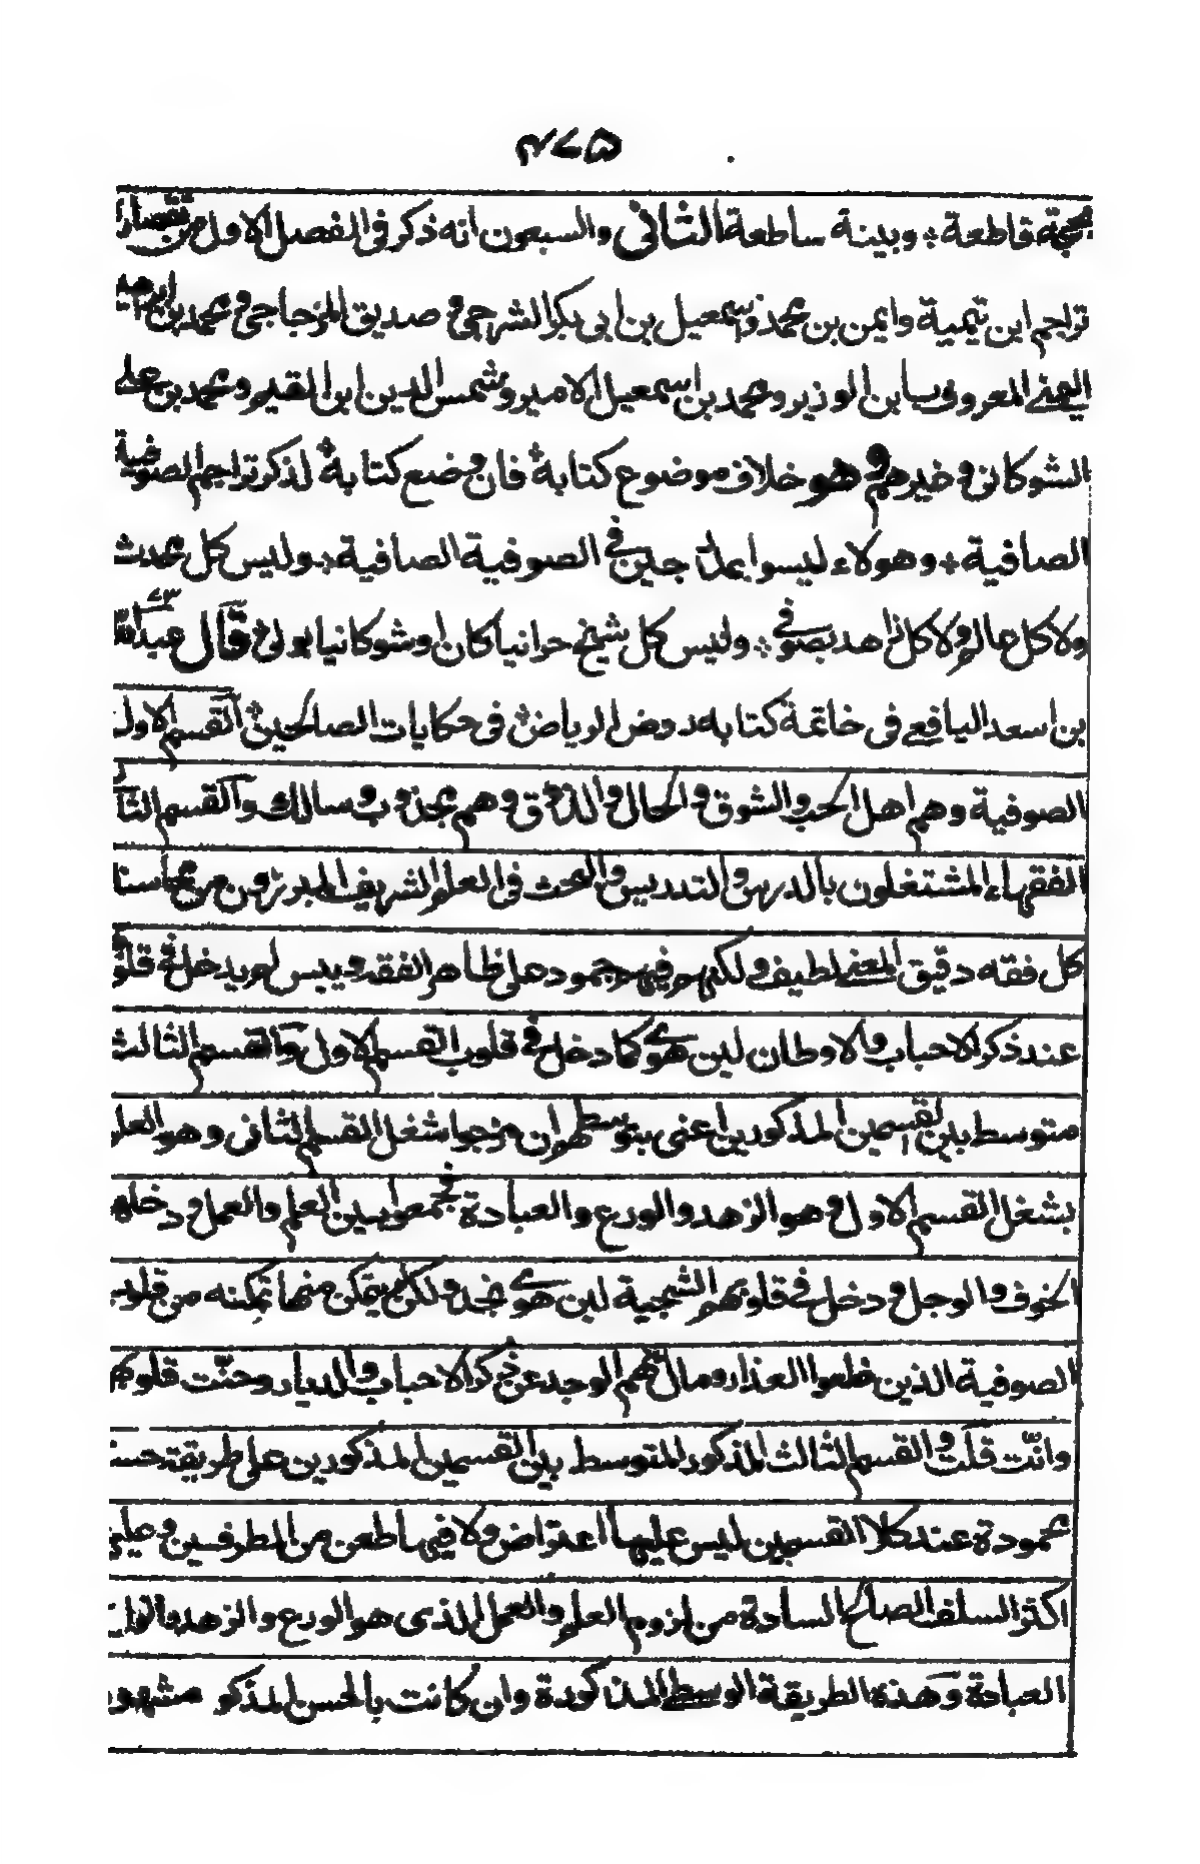 ۴۷۵
بحجة قاطعة ؞ وبينة ساطعة الثاني والسبعون انه ذكر في الفصل الاول من تقصار
تراجم ابن تيمية وايمن بن محمد واسمعيل بن ابي بكر الشرجي و صديق المزجاجي و محمد بن ابراهيم
اليمني المعروف بابن الوزير ومحمد بن اسمعيل الامير وشمس الدين ابن القيم ومحمد بن علي
الشوكاني وغيرهم وهو خلاف موضوع كتابه فان وضع كتابه لذكر تراجم الصوفية
الصافية ؞ وهولاء ليسوا بداخلين في الصوفية الصافية ؞ وليس كل محدث
ولا كل عالم ولا كل زاهد بصوفي ؞ وليس كل شيخ حرانيا كان او شوكانيا بولي قال عبد الله
بن اسعد اليافعي في خاتمة كتابه روض الرياض في حكايات الصالحين القسم الاول
الصوفية وهم اهل الحب والشوق والحال والذوق وهم مجذوب وسالك والقسم الثاني
الفقهاء المشتغلون بالدرس والتدريس والبحث في العلم الشريف المبرزون من محاسنه
كل فقه دقيق المعنى لطيف ولكنهم فيهم جمود على ظاهر الفقه ويبس لم يدخل في قلوبهم
عند ذكر الاحباب والاوطان لين هوى كما دخل في قلوب القسم الاول والقسم الثالث
متوسط بين القسمين المذكورين اعني بتوسطهم ان مزجوا شغل القسم الثاني وهو العلم
بشغل القسم الاول وهو الزهد والورع والعبادة فجمعوا بين العلم والعمل ودخلهم
الخوف والوجل ودخل في قلوبهم الشجية لين هوى نجد ولكن لم يتمكن منها تمكنه من قلوب
الصوفية الذين خلعوا العذار ومال بهم الوجد عن ذكر الاحباب والديار وحنت قلوبهم
وانت قلت والقسم الثالث المذكور المتوسط بين القسمين المذكورين على طريقة حسنة
محمودة عند كلا القسمين ليس عليها اعتراض ولا فيها طعن من الطرفين وعليها
اكثر السلف الصالح السادة من لزوم العلم والعمل الذي هو الورع والزهد
العبادة وهذه الطريقة الوسطى المذكورة وان كانت بالحسن المذكو مشهورة